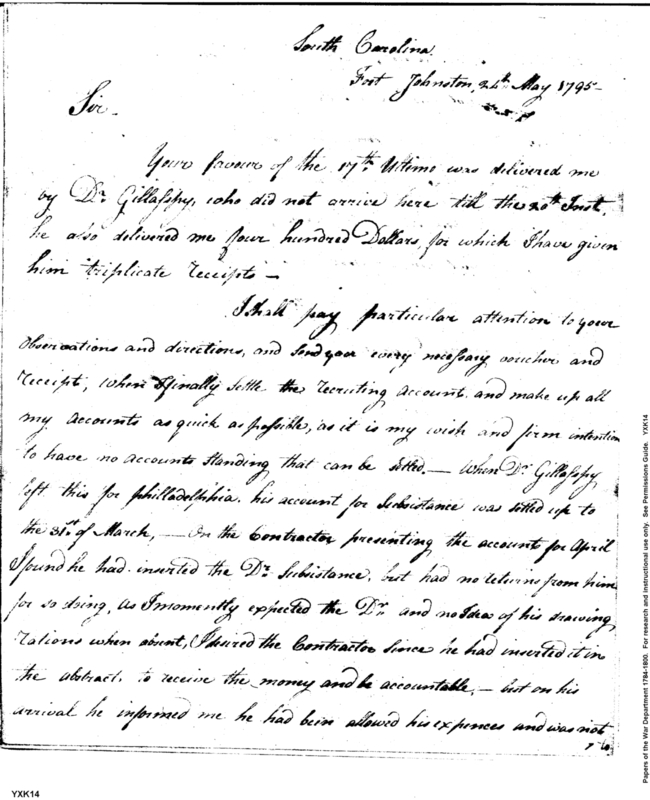 South Carolina
Fort Johnston, 24th May 1795-
Sir-
Your favour of the 17th Ultimo was delivered me
by Dr. Gillaspy, who did not arrive here till the 20th Inst.
he also delivered me four hundred Dollars, for which I have given
him triplicate receipts -
I shall pay particular attention to your
observations and directions, and send you every necessary voucher and
receipt, when I finally settle the recruting account. and make up all
my accounts as quick as possible, as it is my wish and firm intention
to have no accounts standing that can be setled. - When Dr. Gillaspy
left this for philladelphia. his account for Subsistance was setled up to
the 31st of March, - On the Contractor presenting the account for April
I found he had inserted the Drs. Subsistance, but had no returns from him
for so doing, as I momently expected the Dr. and no Idea of his drawing
rations when absent, I desired the Contractor since he had inserted it in
the abstract. to receive the money and be accountable, - but on his
arrival he informed me he had been allowed his expences and was not
to
YXK14
Papers of the War Department 1784-1800. For research and instructional use only. See Permissions Guide. YXK14